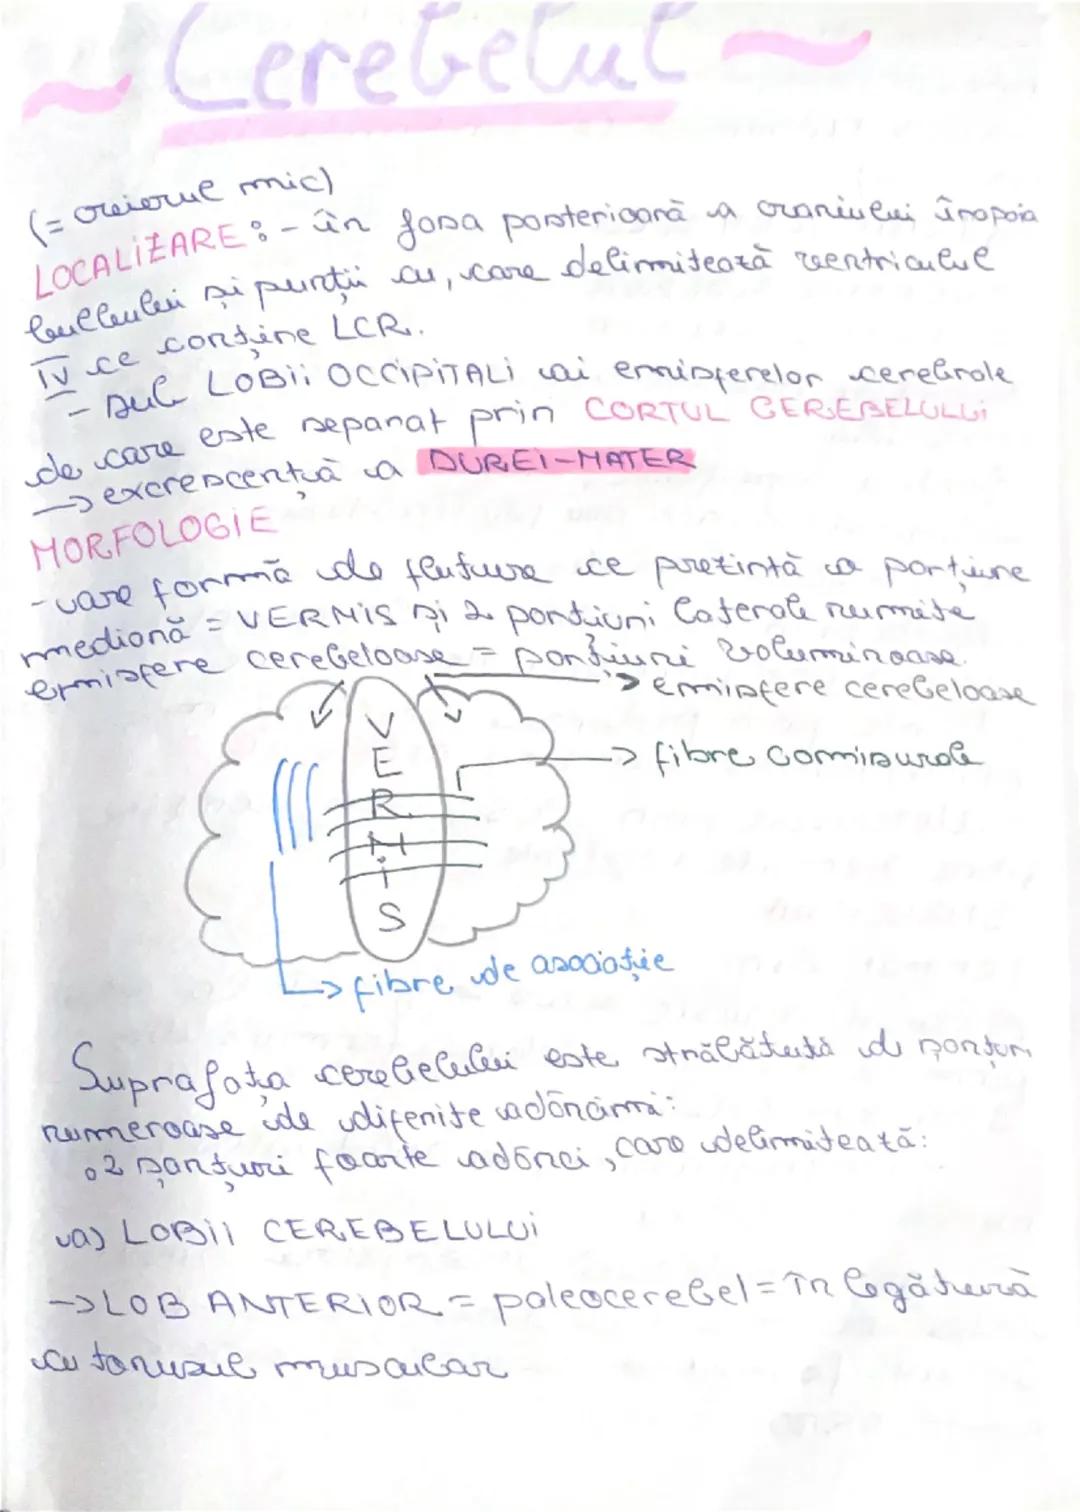 ~ Cerebelul ~
(= creierul mic)
LOCALIZARE: - în fosa posterioară a craniului înapoia
bulbului și punții cu, care delimitează ventriculul
IV ce conține LCR.
- sub LOBII OCCIPITALI ai emisferelor cerebrale
de care este separat prin CORTUL CEREBELULUI
→ excrescență a DUREI-MATER
MORFOLOGIE
- are formă de fluture ce prezintă o porțiune
mediană = VERMIS și 2 porțiuni laterale numite
emisfere cerebeloase = porțiuni voluminoase.
→ emisfere cerebeloase
VERMIS
→ fibre comisurale
→ fibre de asociație
Suprafața cerebelului este străbătută de șanțuri
numeroase de diferite adâncimi:
• 2 șanțuri foarte adânci, care delimitează:
a) LOBII CEREBELULUI
→ LOB ANTERIOR = paleocerebel = în legătură
cu tonusul muscular